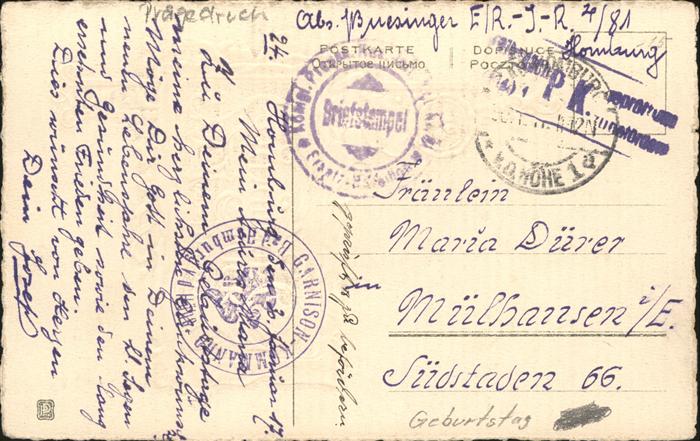 Prägedruck
Abs. Buesinger E/R.-I-R. 4/81
Homburg
POSTKARTE
DOPISNICE
Открытое письмо
P.K.
Königl. Pr.
Briefstempel
Ersatz-Bataillon
v.d. HÖHE 1
GARNISON
KOMMANDO
Homburg, den 2. Januar 17.
Mein liebes Maria
Zu Deinem Geburtstage
meine herzlichsten Glückwünsche
Möge Dir Gott in Deinem
neuen Lebensjahre den
Segen
und Gesundheit sowie den lang
ersehnten Frieden geben.
Dies wünscht von Herzen
Dein
Josef
Fräulein
Maria Dürer
in
Mülhausen i/E.
Südstaden 66.
Geburtstag